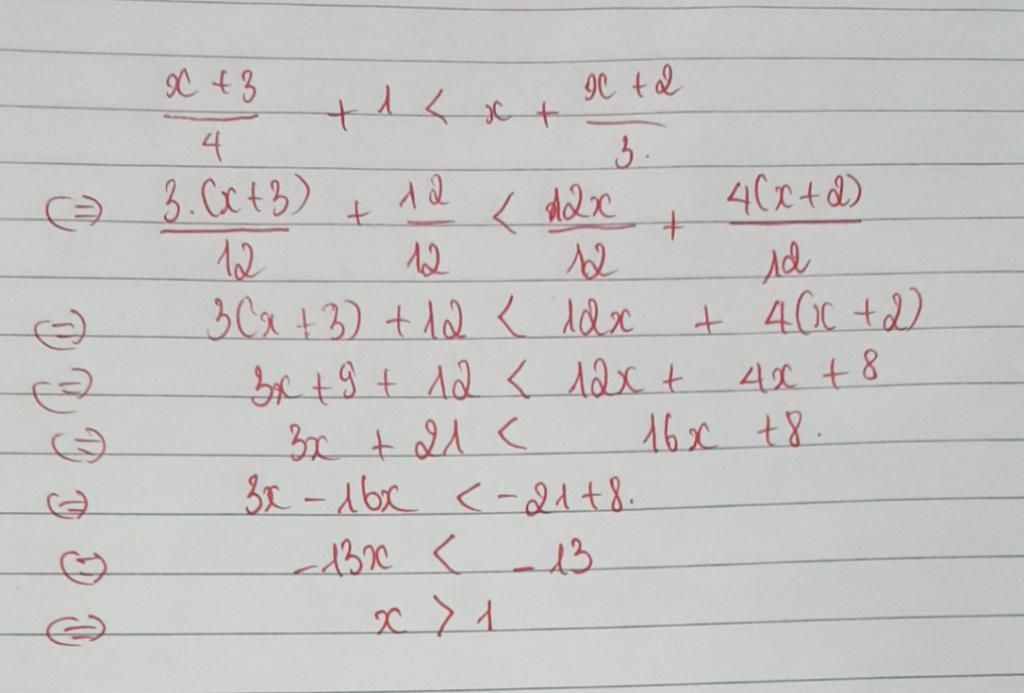 x + 3 / 4 + 1 < x + x + 2 / 3.
⇔ 3.(x+3) / 12 + 12 / 12 < 12x / 12 + 4(x+2) / 12
⇔ 3(x + 3) + 12 < 12x + 4(x + 2)
⇔ 3x + 9 + 12 < 12x + 4x + 8
⇔ 3x + 21 < 16x + 8.
⇔ 3x - 16x < - 21 + 8.
⇔ - 13x < - 13
⇔ x > 1